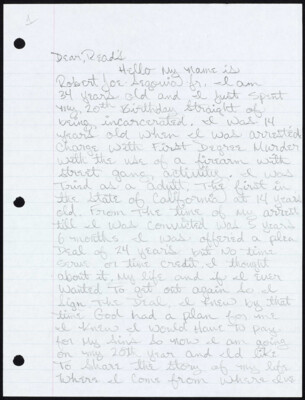 1
Dear, Read2
Hello My name is
Robert Joe Segovia Jr. I am
34 years old and I Just spent
my 20th Birthday straight of
being incarcerated. I was 14
years old when I was arrested
Charge With First Degree Murder
With the use of a firearm with
street gang activitie. I was
Tried as a adult, The first in
the State of California at 14 years
old. From The time of my arrest
till I was Convicted Was 5 years
6 months I was offered a plea
Deal of 24 years but No time
serve or time credit I thought
about it, My life and if I Ever
Wanted To get out again So I
sign the Deal, I knew by that
time God had a plan for me
I knew I would Have To pay
for My Sins So now I am going
on my 20th year and I'd like
To Share the Story of my life
Where I Come from Where I've